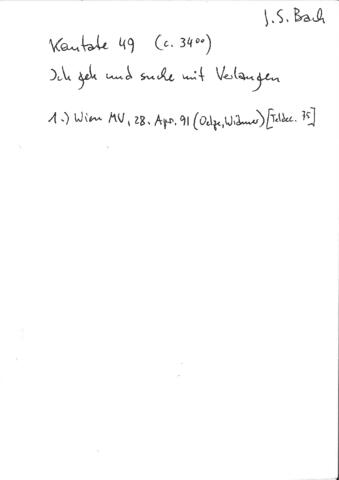 J.S. Bach
Kantate 49 (c. 34⁰⁰)
Ich geh und suche mit Verlangen
1.) Wien MV, 28. Apr. 91 (Oelze, Widmer) [Teldec. 75]